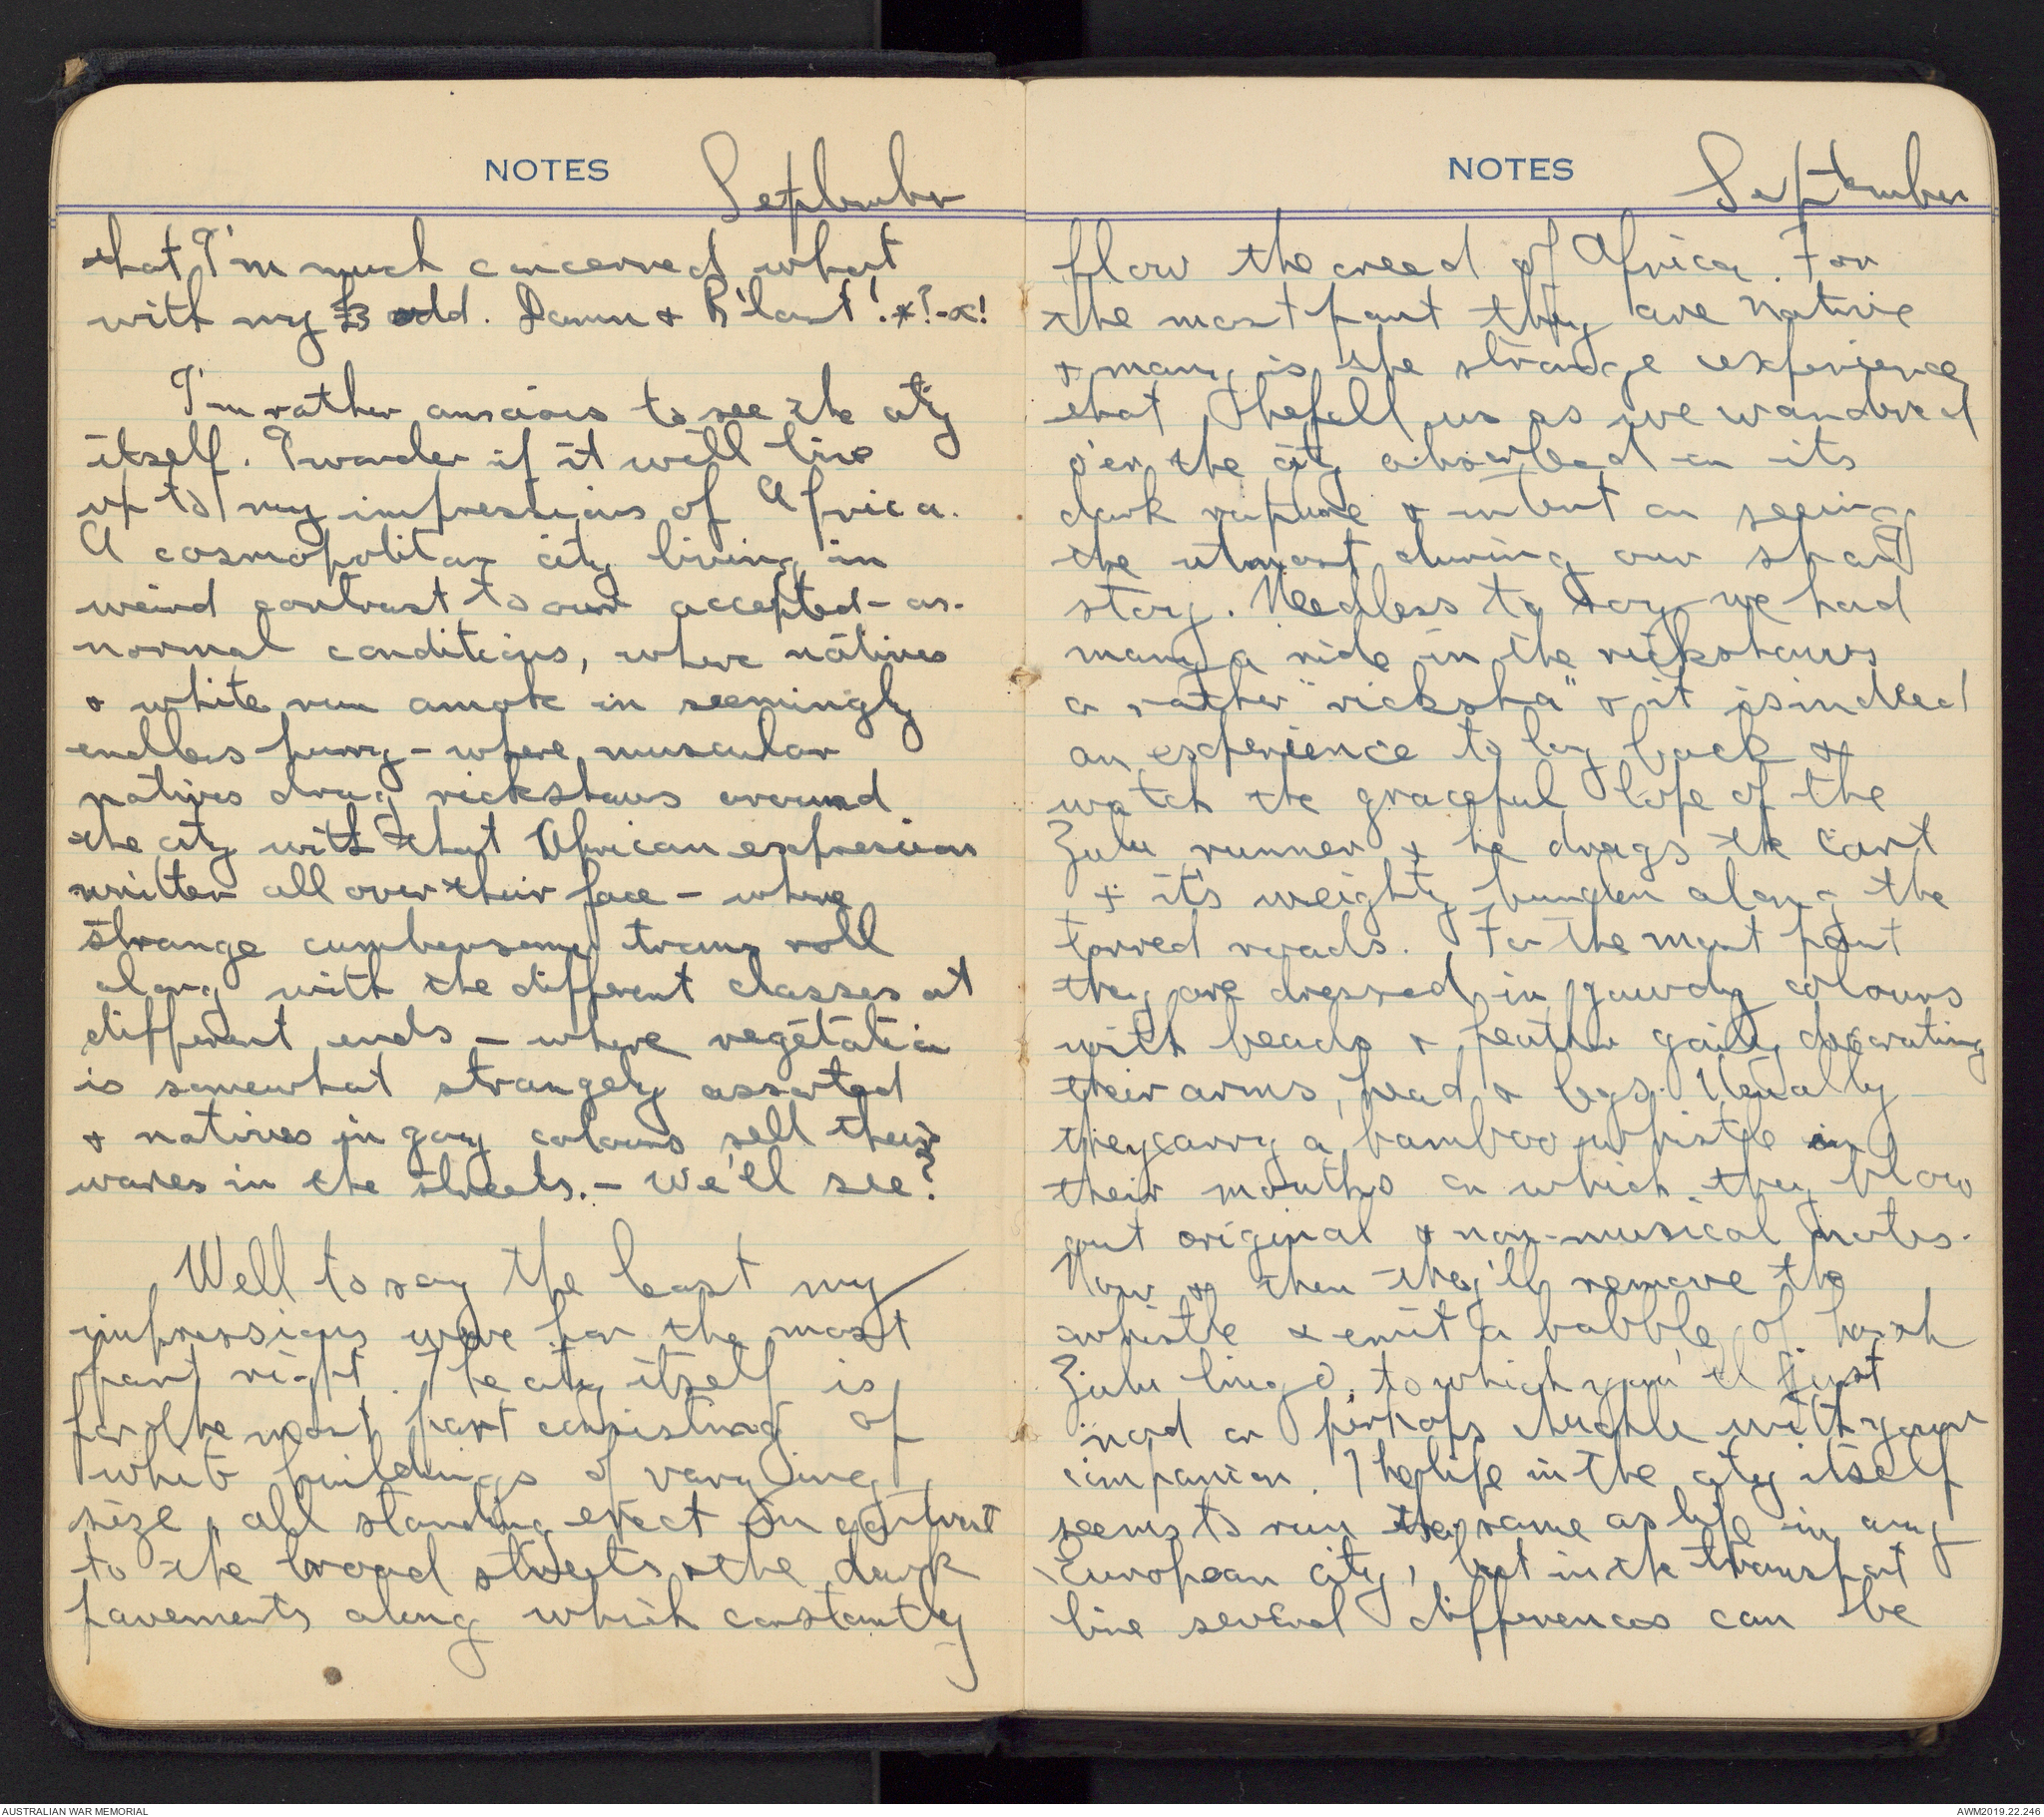 NOTES September
that I'm much concerned what
with my £3 odd. Damn & B'last! *?-x!
I'm rather anxious to see the city
itself. I wonder if it will live
up to my impressions of Africa.
A cosmopolitan city living in
weird contrast to our accepted-as-
normal conditions, where natives
& white run amok in seemingly
endless hurry - where muscular
natives drag rickshaws around
the city with that African expression
written all over their face - where
strange cumbersome trams roll
along with the different classes at
different ends - where vegetation
is somewhat strangely assorted
& natives in gay colours sell their
wares in the streets. - We'll see?
Well to say the least my
impressions were for the most
part right. The city itself is
for the most part consisting of
white buildings of varying
size, all standing erect in contrast
to the broad streets & the dark
pavements along which constantly
NOTES September
flow the creed of Africa. For
the most part they are native
& many is the strange experience
that befell us as we wandered
o'er the city absorbed in its
dark rapture & intent on seeing
the utmost during our short
stay. Needless to say we had
many a ride in the rickshaws
a rather "ricksha" & it is indeed
an experience to lay back &
watch the graceful lope of the
Zulu runner & he drags the cart
& it's weighty burden along the
tarred roads. For the most part
they are dressed in gawdy colours
with beads & feather gaily decorating
their arms, head & legs. Usually
they carry a bamboo whistle in
their mouths on which they blow
out original & non-musical notes.
Now & then they'll remove the
whistle & emit a babble of harsh
Zulu lingo, to which you'll just
nod or perhaps chuckle with your
companion. The life in the city itself
seems to run the same as life in any
European city, but in the transport
line several differences can be
AUSTRALIAN WAR MEMORIAL
AWM2019.22.246